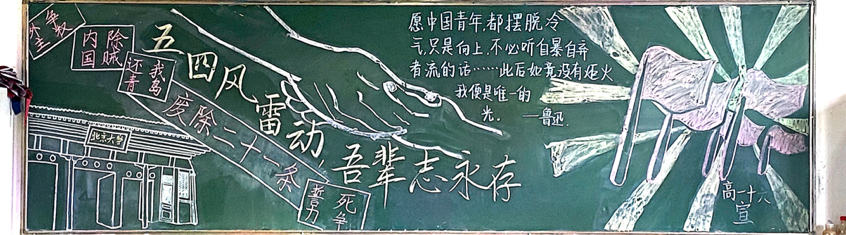 外争
主权
内除
国贼
还我
青岛
废除二十一条
誓死
力争
北京大学
五四风雷动,吾辈志永存
愿中国青年,都摆脱冷
气,只是向上,不必听自暴自弃
者流的话……此后如竟没有炬火
我便是唯一的
光。 ——鲁迅.
高一十六
宣